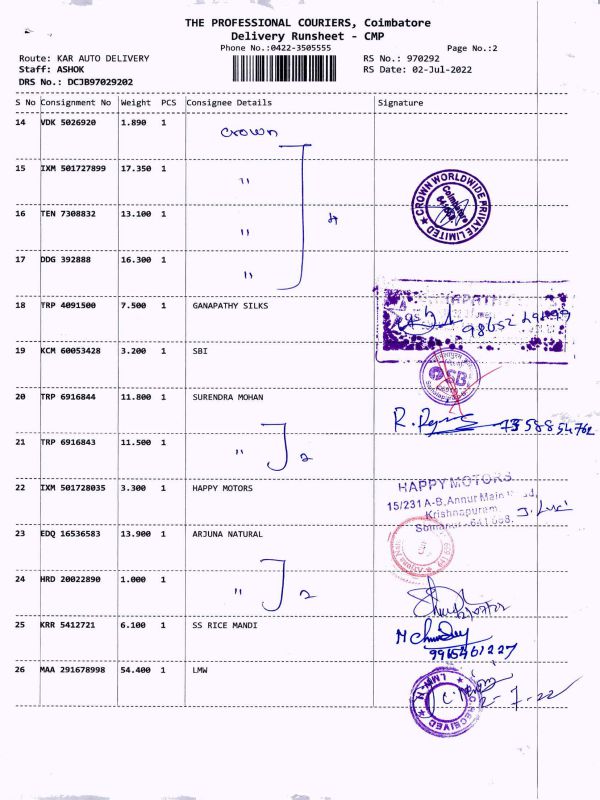 THE PROFESSIONAL COURIERS, Coimbatore
Delivery Runsheet - CMP
Phone No.:0422-3505555
Page No.:2
Route: KAR AUTO DELIVERY
RS No.: 970292
Staff: ASHOK
RS Date: 02-Jul-2022
DRS No.: DCJB97029202
S No Consignment No Weight PCS Consignee Details Signature
14 VDK 5026920 1.890 1 Crown
15 IXM 501727899 17.350 1 "
CROWN WORLDWIDE PRIVATE LIMITED
Coimbatore
16 TEN 7308832 13.100 1 " 4
17 DDG 392888 16.300 1 "
18 TRP 4091500 7.500 1 GANAPATHY SILKS
19 KCM 60053428 3.200 1 SBI
SB
20 TRP 6916844 11.800 1 SURENDRA MOHAN
21 TRP 6916843 11.500 1 " 2
22 IXM 501728035 3.300 1 HAPPY MOTORS
HAPPY MOTORS
15/231 A-B, Annur Main
Krishnapuram
23 EDQ 16536583 13.900 1 ARJUNA NATURAL
24 HRD 20022890 1.000 1 " 2
25 KRR 5412721 6.100 1 SS RICE MANDI
9965461227
26 MAA 291678998 54.400 1 LMW
2-7-22
RECEIVED